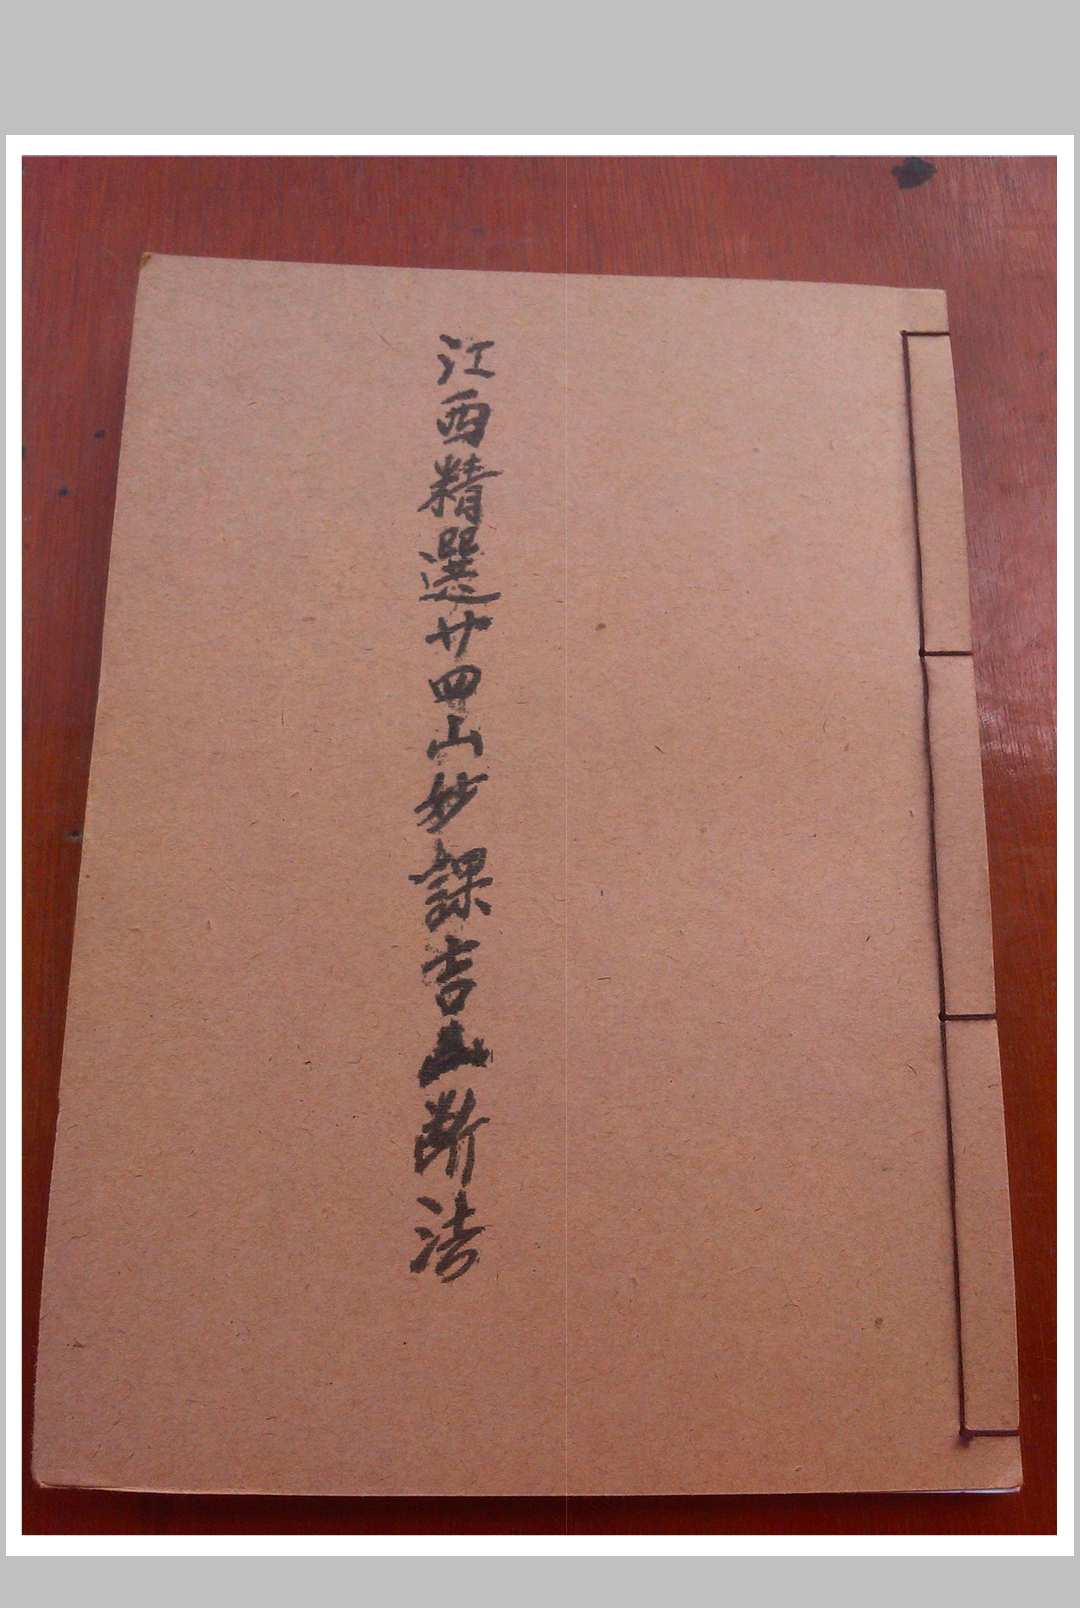 江西精選廿四山妙課吉凶斷法